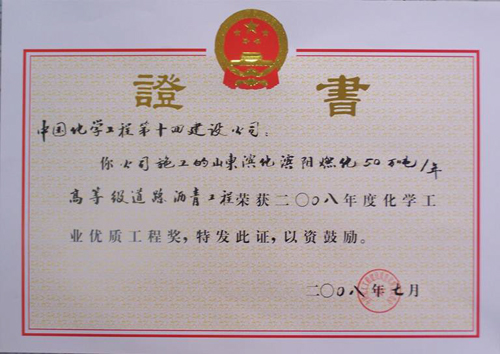 證書
中国化学工程第十四建设公司：
你公司施工的山东滨化滨阳燃化50万吨/年
高等级道路沥青工程荣获二〇〇八年度化学工
业优质工程奖，特发此证，以资鼓励。
二〇〇八年七月